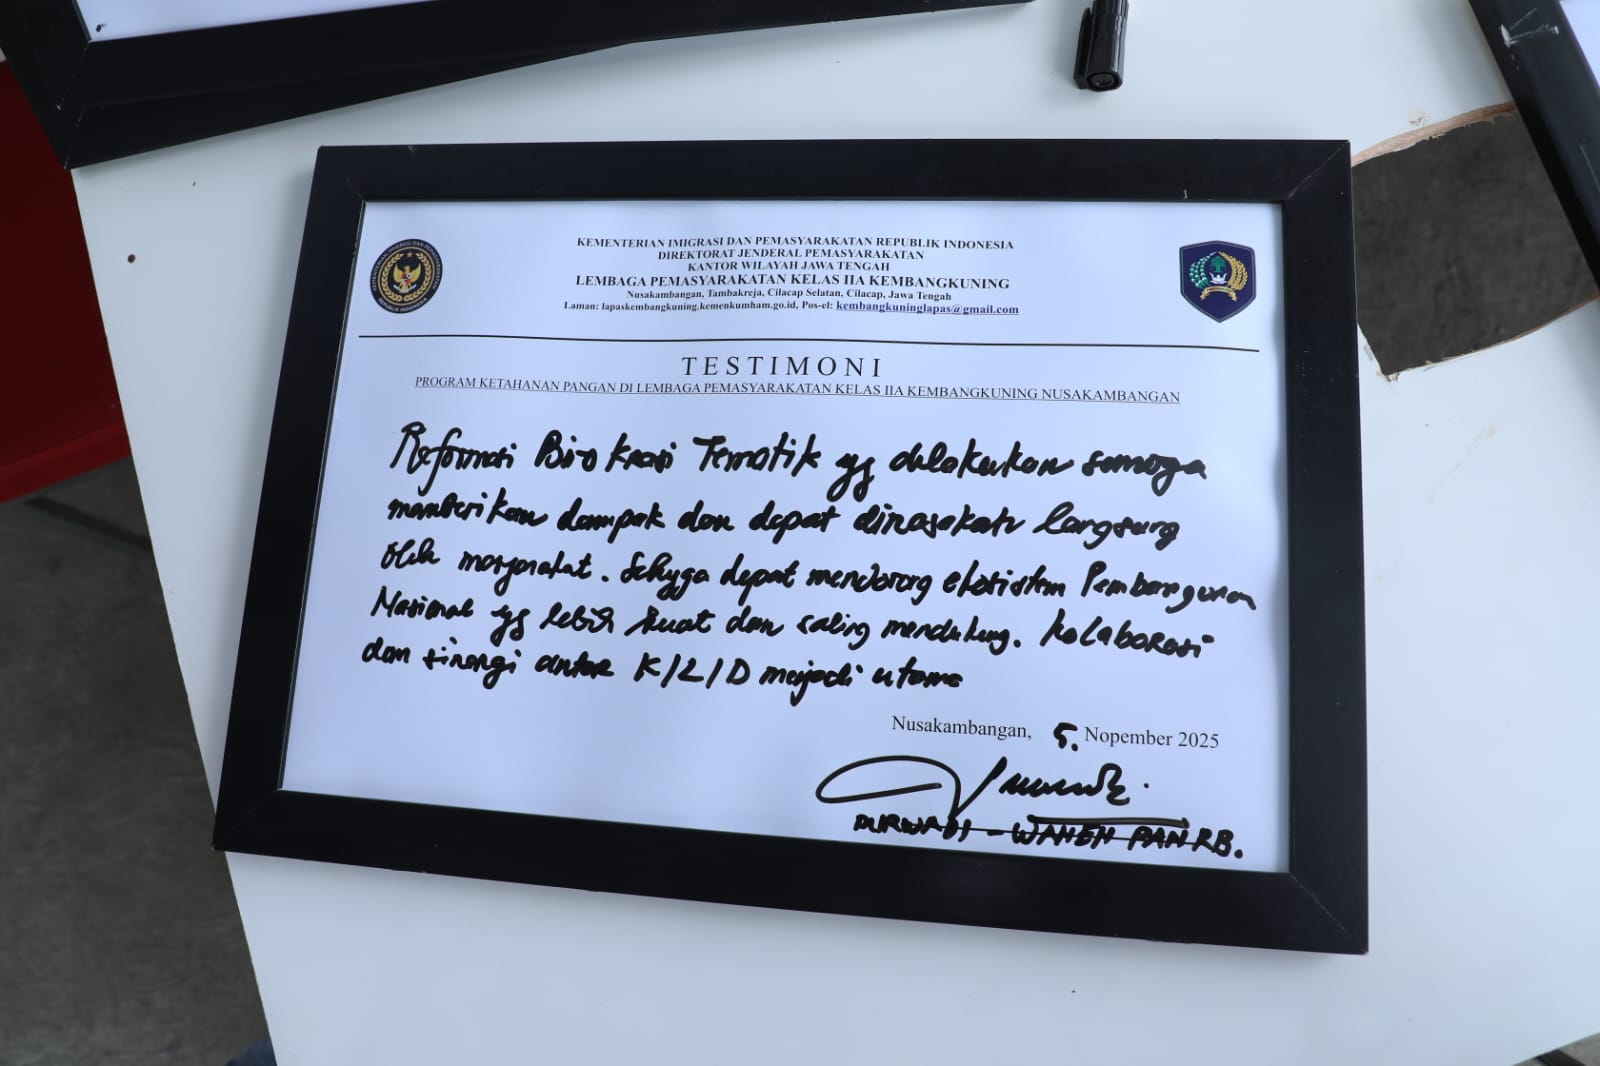 KEMENTERIAN IMIGRASI DAN PEMASYARAKATAN REPUBLIK INDONESIA
DIREKTORAT JENDERAL PEMASYARAKATAN
KANTOR WILAYAH JAWA TENGAH
LEMBAGA PEMASYARAKATAN KELAS IIA KEMBANGKUNING
Nusakambangan, Tambakreja, Cilacap Selatan, Cilacap, Jawa Tengah
Laman: lapaskembangkuning.kemenkumham.go.id, Pos-el: kembangkuninglapas@gmail.com
TESTIMONI
PROGRAM KETAHANAN PANGAN DI LEMBAGA PEMASYARAKATAN KELAS IIA KEMBANGKUNING NUSAKAMBANGAN
Reformasi Birokrasi Tematik yg dilakukan semoga
memberikan dampak dan dapat dirasakan langsung
oleh masyarakat. Sehingga dapat mendorong ekosistem Pembangunan
Nasional yg lebih kuat dan saling mendukung. Kolaborasi
dan sinergi antar K/L/D menjadi utama
Nusakambangan, 5. Nopember 2025
PURWADI - WAMEN PANRB.